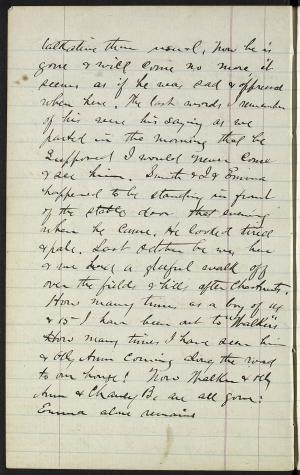 talkative than usual, Now he is
gone & will come no more it
seems as if he was sad & oppressed
when here. The last words I remember
of his were his saying as we
parted in the morning that he
supposed I would never come
& see him. Smith & I & Emma
happened to be standing in front
of the stable door that evening
when he came. He looked tired
& pale. Last October he was here
& we had a gleeful walk off
over the fields & hills after Chestnuts.
How many times as a boy of 14
& 15 I have been out to "Walker's"
How many times I have seen him
& Ann coming along the road
to our house! Now Walker &
Ann & Charley B. are all gone:
Emma alone remains